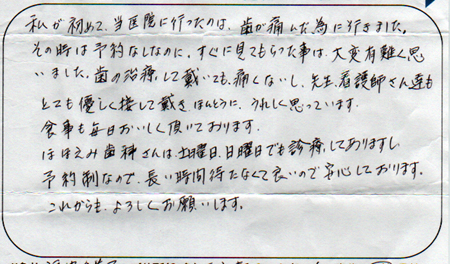 私が初めて、当医院に行ったのは、歯が痛んだ為に行きました。
その時は予約なしなのに、すぐに見てもらった事は、大変有難く思
いました。歯の治療して戴いても、痛くないし、先生、看護師さん達も
とても優しく接して戴き、ほんとうに、うれしく思っています。
食事も毎日おいしく頂いております。
ほほえみ歯科さんは、土曜日、日曜日でも診療してありますし
予約制なので、長い時間待たなくて良いので安心しております。
これからも、よろしくお願いします。